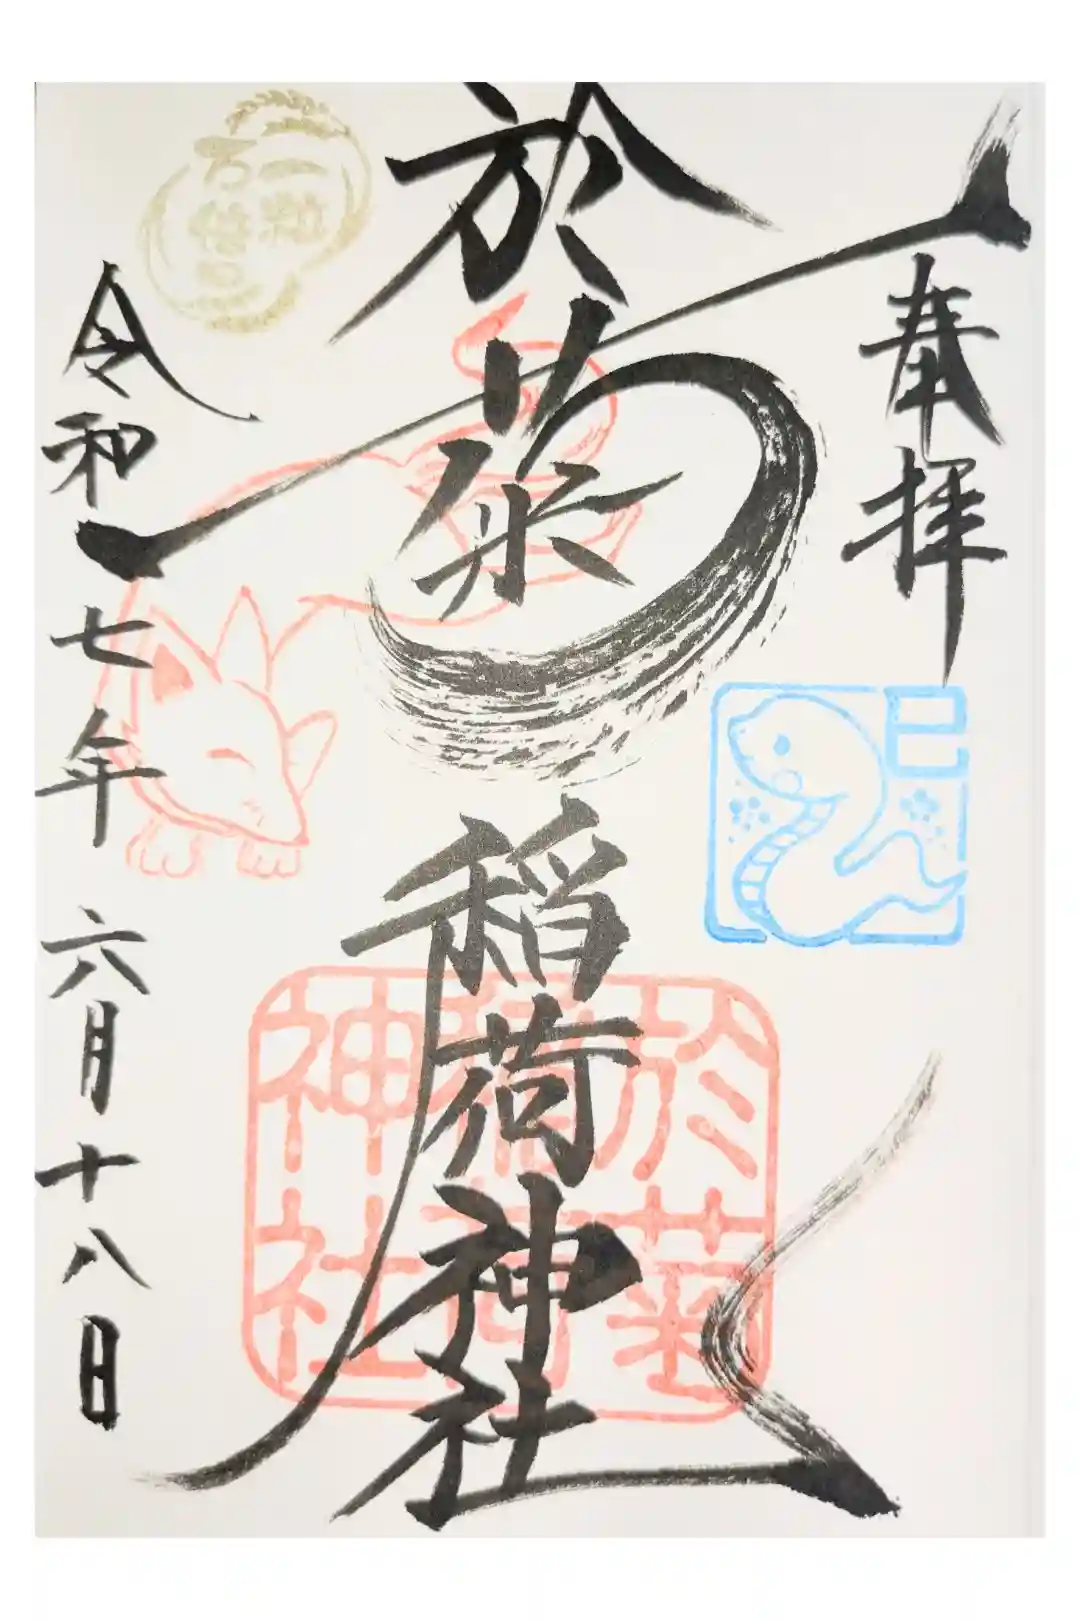 奉拝
巳
於菊稲荷神社
於菊
稲荷
神社
一粒
万倍日
令和七年六月十八日